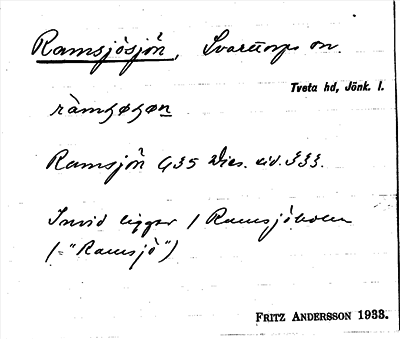 Ramsjösjön, Svarttorps sn.
Tveta hd, Jönk. l.
Ramsjön 435 Dies. eid. 333.
Invid ligger / Ramsjöholm
(="Ramsjö")
FRITZ ANDERSSON 1933.